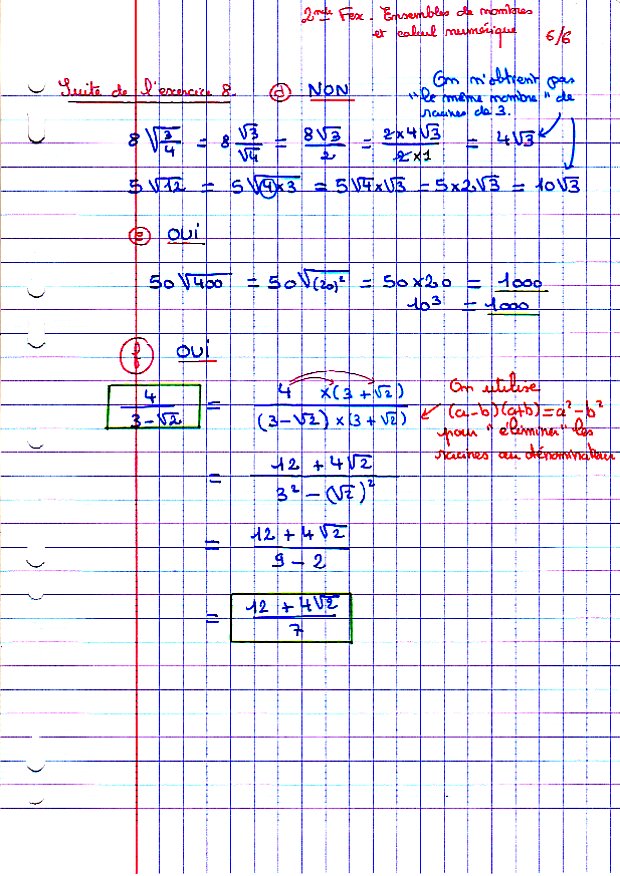 2nde Fex - Ensembles de nombres
et calcul numérique 6/6
Suite de l'exercice 8. (d) NON
On n'obtient pas
"le même nombre" de
racines de 3.
8√(3/4) = 8 √3/√4 = 8√3/2 = 2×4√3/2×1 = 4√3
5√12 = 5√(4×3) = 5√4×√3 = 5×2√3 = 10√3
(e) OUI
50√400 = 50√(20)² = 50×20 = 1000
10³ = 1000
(f) OUI
4/(3-√2) = 4 ×(3+√2)/((3-√2)×(3+√2))
On utilise
(a-b)(a+b)=a²-b²
pour "éliminer" les
racines au dénominateur
= (12+4√2)/(3²-(√2)²)
= (12+4√2)/(9-2)
= (12+4√2)/7